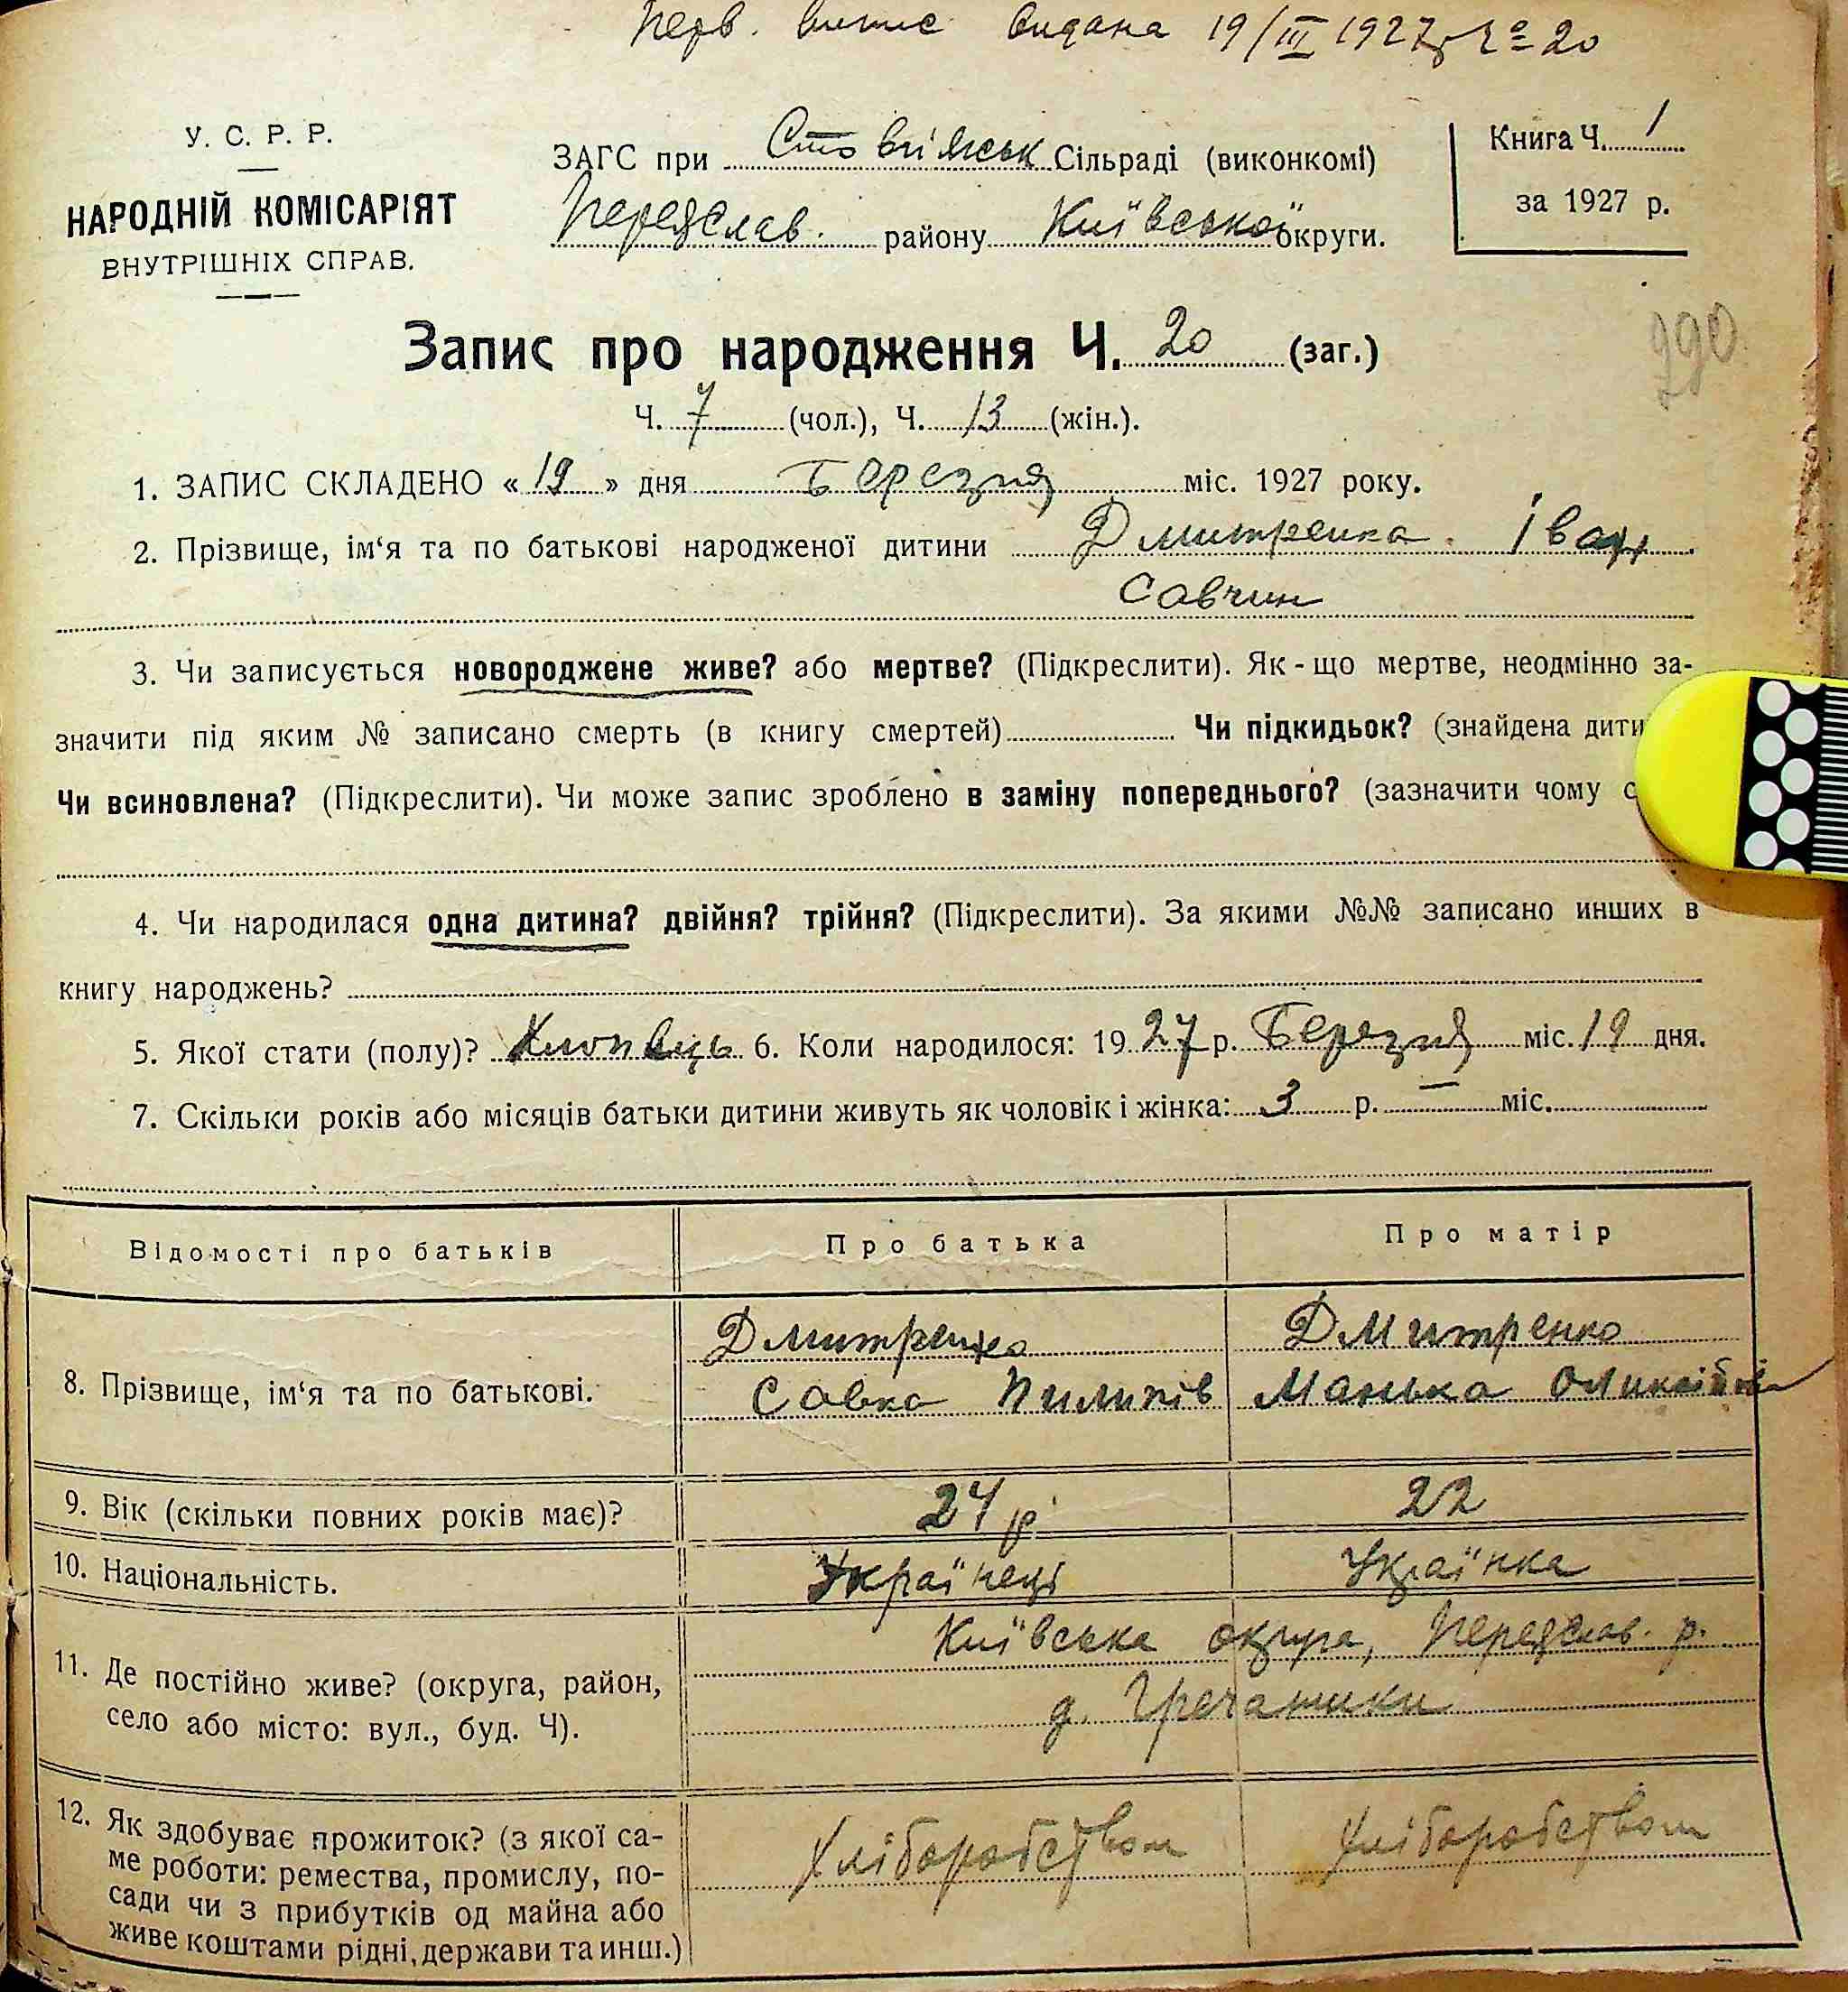 Перв. випис видана 19/III 1927 р. № 20
У. С. Р. Р.
НАРОДНІЙ КОМІСАРІЯТ
ВНУТРІШНІХ СПРАВ.
ЗАГС при Стовп'яськ Сільраді (виконкомі)
Переяслав. району Київської округи.
Книга Ч. 1
за 1927 р.
290
Запис про народження Ч. 20 (заг.)
Ч. 7 (чол.), Ч. 13 (жін.).
1. ЗАПИС СКЛАДЕНО «19» дня Березня міс. 1927 року.
2. Прізвище, ім‘я та по батькові народженої дитини Дмитренко Іван
Савчин
3. Чи записується новороджене живе? або мертве? (Підкреслити). Як-що мертве, неодмінно за-
значити під яким № записано смерть (в книгу смертей) Чи підкидьок? (знайдена дити
Чи всиновлена? (Підкреслити). Чи може запис зроблено в заміну попереднього? (зазначити чому с
4. Чи народилася одна дитина? двійня? трійня? (Підкреслити). За якими №№ записано инших в
книгу народжень?
5. Якої стати (полу)? Хлопець 6. Коли народилося: 1927 р. Березня міс. 19 дня.
7. Скільки років або місяців батьки дитини живуть як чоловік і жінка: 3 р. — міс.
Відомості про батьків Про батька Про матір
8. Прізвище, ім‘я та по батькові. Дмитренко Дмитренко
Савка Пилипів Манька
9. Вік (скільки повних років має)? 24 р 22
10. Національність. Українець Українка
11. Де постійно живе? (округа, район,
село або місто: вул., буд. Ч).
Київська округа, Переяслав. р.
д. Гречаники
12. Як здобуває прожиток? (з якої са-
ме роботи: ремества, промислу, по-
сади чи з прибутків од майна або
живе коштами рідні, держави та инш.)
Хліборобством Хліборобством